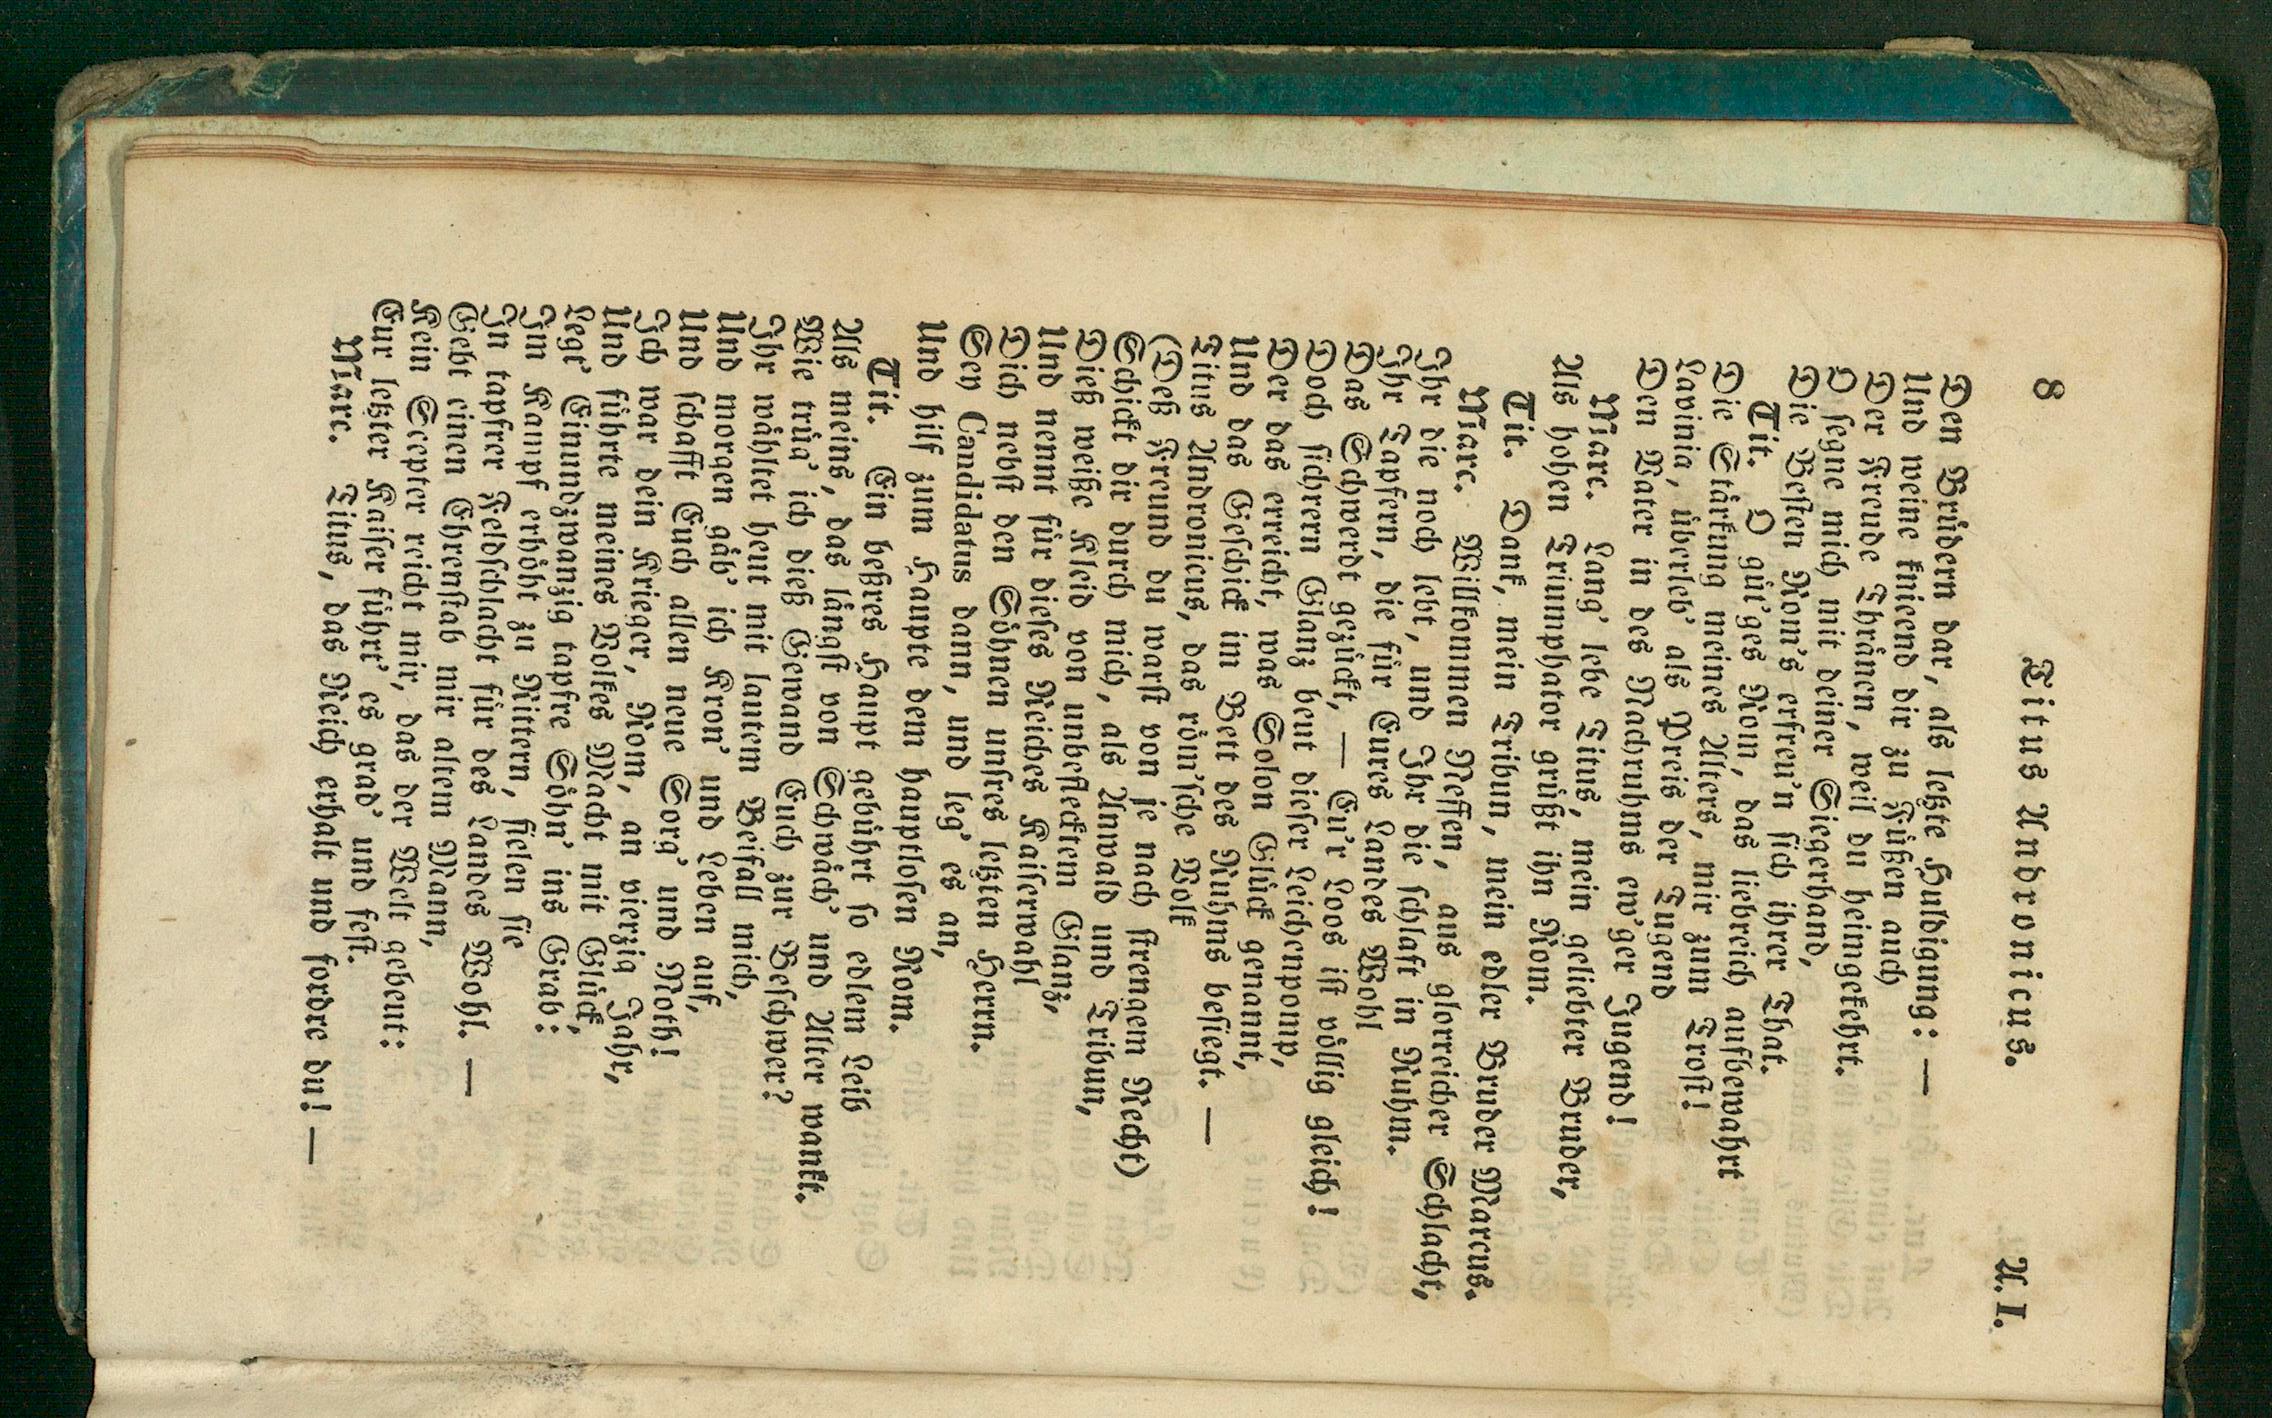 8 Titus Andronicus. A. I.
Den Brüdern dar, als letzte Huldigung: —
Und weine knieend dir zu Füßen auch
Der Freude Thränen, weil du heimgekehrt.
O segne mich mit deiner Siegerhand,
Die Besten Rom's erfreu'n sich ihrer That.
Tit. O güt'ges Rom, das liebreich aufbewahrt
Die Stärkung meines Alters, mir zum Trost!
Lavinia, überleb' als Preis der Tugend
Den Vater in des Nachruhms ew'ger Jugend!
Marc. Lang' lebe Titus, mein geliebter Bruder,
Als hohen Triumphator grüßt ihn Rom.
Tit. Dank, mein Tribun, mein edler Bruder Marcus.
Marc. Willkommen Neffen, aus glorreicher Schlacht,
Ihr die noch lebt, und Ihr die schlaft in Ruhm.
Ihr Tapfern, die für Eures Landes Wohl
Das Schwerdt gezückt, — Eu'r Loos ist völlig gleich!
Doch sichrern Glanz beut dieser Leichenpomp,
Der das erreicht, was Solon Glück genannt,
Und das Geschick im Bett des Ruhms besiegt. —
Titus Andronicus, das röm'sche Volk
(Deß Freund du warst von je nach strengem Recht)
Schickt dir durch mich, als Anwald und Tribun,
Dieß weiße Kleid von unbeflecktem Glanz,
Und nennt für dieses Reiches Kaiserwahl
Dich nebst den Söhnen unsres letzten Herrn.
Sey Candidatus dann, und leg' es an,
Und hilf zum Haupte dem hauptlosen Rom.
Tit. Ein beßres Haupt gebührt so edlem Leib
Als meins, das längst von Schwäch' und Alter wankt.
Wie trüg' ich dieß Gewand Euch zur Beschwer?
Ihr wähltet heut mit lautem Beifall mich,
Und morgen gäb' ich Kron' und Leben auf,
Und schafft Euch allen neue Sorg' und Noth!
Ich war dein Krieger, Rom, an vierzig Jahr,
Und führte meines Volkes Macht mit Glück,
Legt' Einundzwanzig tapfre Söhn' ins Grab:
Im Kampf erhöht zu Rittern, fielen sie
In tapfrer Feldschlacht für des Landes Wohl. —
Gebt einen Ehrenstab mir altem Mann,
Kein Scepter reicht mir, das der Welt gebeut:
Eur letzter Kaiser führt' es grad' und fest.
Marc. Titus, das Reich erhalt und fordre du! —